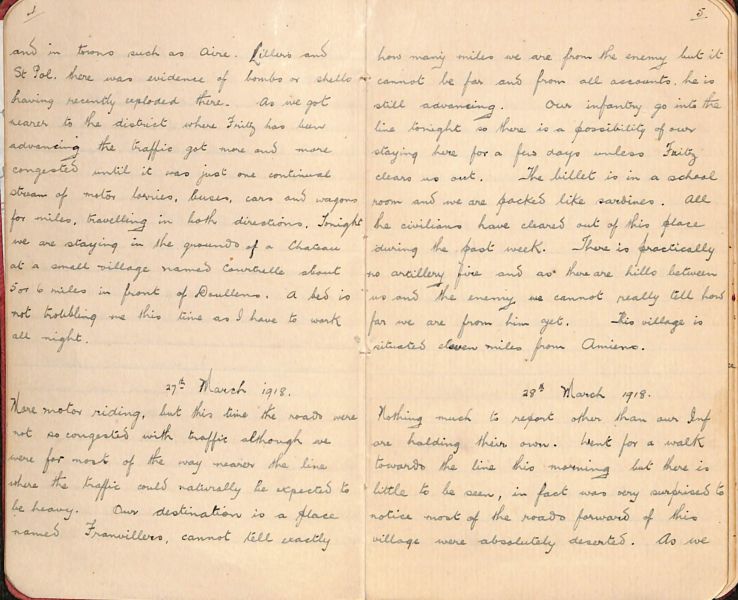 4
and in towns such as Aire. Lillers and
St Pol. there was evidence of bombs or shells
having recently exploded there. As we got
nearer to the district where Fritz has been
advancing the traffic got more and more
congested until it was just one continual
stream of motor lorries, buses, cars and wagons
for miles, travelling in both directions. Tonight
we are staying in the grounds of a Chateau
at a small village named Courtrelle about
5 or 6 miles in front of Doullens. A bed is
not troubling me this time as I have to work
all night.
27th March 1918.
More motor riding, but this time the roads were
not so congested with traffic although we
were for most of the way nearer the line
where the traffic could naturally be expected to
be heavy. Our destination is a place
named Franvillers, cannot tell exactly
5.
how many miles we are from the enemy but it
cannot be far and from all accounts, he is
still advancing. Our infantry go into the
line tonight so there is a possibility of our
staying here for a few days unless Fritz
clears us out. The billet is in a school
room and we are packed like sardines. All
the civilians have cleared out of this place
during the past week. There is practically
no artillery fire and as there are hills between
us and the enemy we cannot really tell how
far we are from him yet. This village is
situated eleven miles from Amiens.
28th March 1918.
Nothing much to report other than our Inf
are holding their own. Went for a walk
towards the line this morning but there is
little to be seen, in fact was very surprised to
notice most of the roads forward of this
village were absolutely deserted. As we